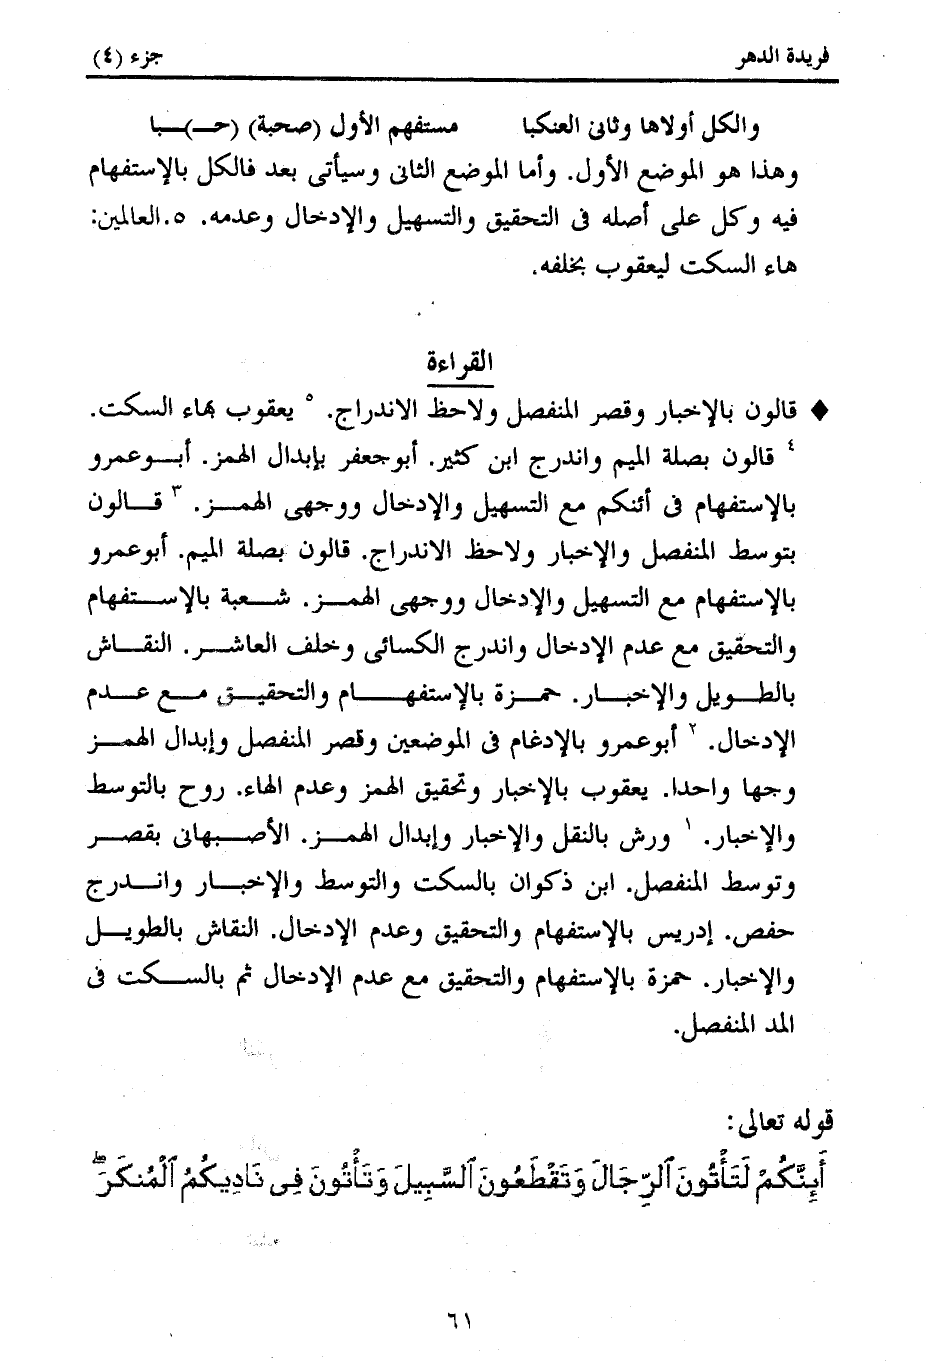 فريدة الدهر جزء (٤)
والكل أولاها وثانى العنكبا مستفهم الأول (صحبة) (حـ)ـبا
وهذا هو الموضع الأول. وأما الموضع الثانى وسيأتى بعد فالكل بالإستفهام
فيه وكل على أصله فى التحقيق والتسهيل والإدخال وعدمه. ٥.العالمين:
هاء السكت ليعقوب بخلفه.
القراءة
♦ قالون بالإخبار وقصر المنفصل ولاحظ الاندراج. ٥ يعقوب بهاء السكت.
٤ قالون بصلة الميم واندرج ابن كثير. أبوجعفر بإبدال الهمز. أبـوعمرو
بالإستفهام فى أئنكم مع التسهيل والإدخال ووجهى الهمـز. ٣ قـالون
بتوسط المنفصل والإخبار ولاحظ الاندراج. قالون بصلة الميم. أبوعمرو
بالإستفهام مع التسهيل والإدخال ووجهى الهمـز. شـعبة بالإسـتفهام
والتحقيق مع عدم الإدخال واندرج الكسائى وخلف العاشـر. النقـاش
بالطـويل والإخبـار. حمـزة بالإستفهـام والتحقيـق مـع عـدم
الإدخال. ٢ أبوعمرو بالإدغام فى الموضعين وقصر المنفصل وإبدال الهمـز
وجها واحدا. يعقوب بالإخبار وتحقيق الهمز وعدم الهاء. روح بالتوسط
والإخبار. ١ ورش بالنقل والإخبار وإبدال الهمـز. الأصـبهانى بقصـر
وتوسط المنفصل. ابن ذكوان بالسكت والتوسط والإخبـار وانـدرج
حفص. إدريس بالإستفهام والتحقيق وعدم الإدخال. النقاش بالطويـل
والإخبار. حمزة بالإستفهام والتحقيق مع عدم الإدخال ثم بالسـكت فى
المد المنفصل.
قوله تعالى:
أَئِنَّكُمْ لَتَأْتُونَ ٱلرِّجَالَ وَتَقْطَعُونَ ٱلسَّبِيلَ وَتَأْتُونَ فِى نَادِيكُمُ ٱلْمُنكَرَ ۖ
٦١